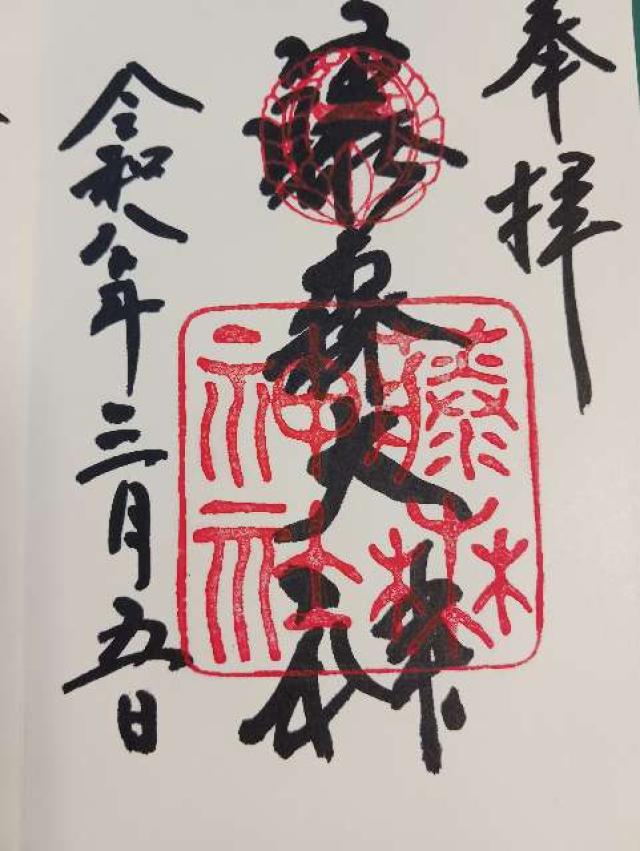 奉拝
藤森大神
藤森神社
令和八年三月五日